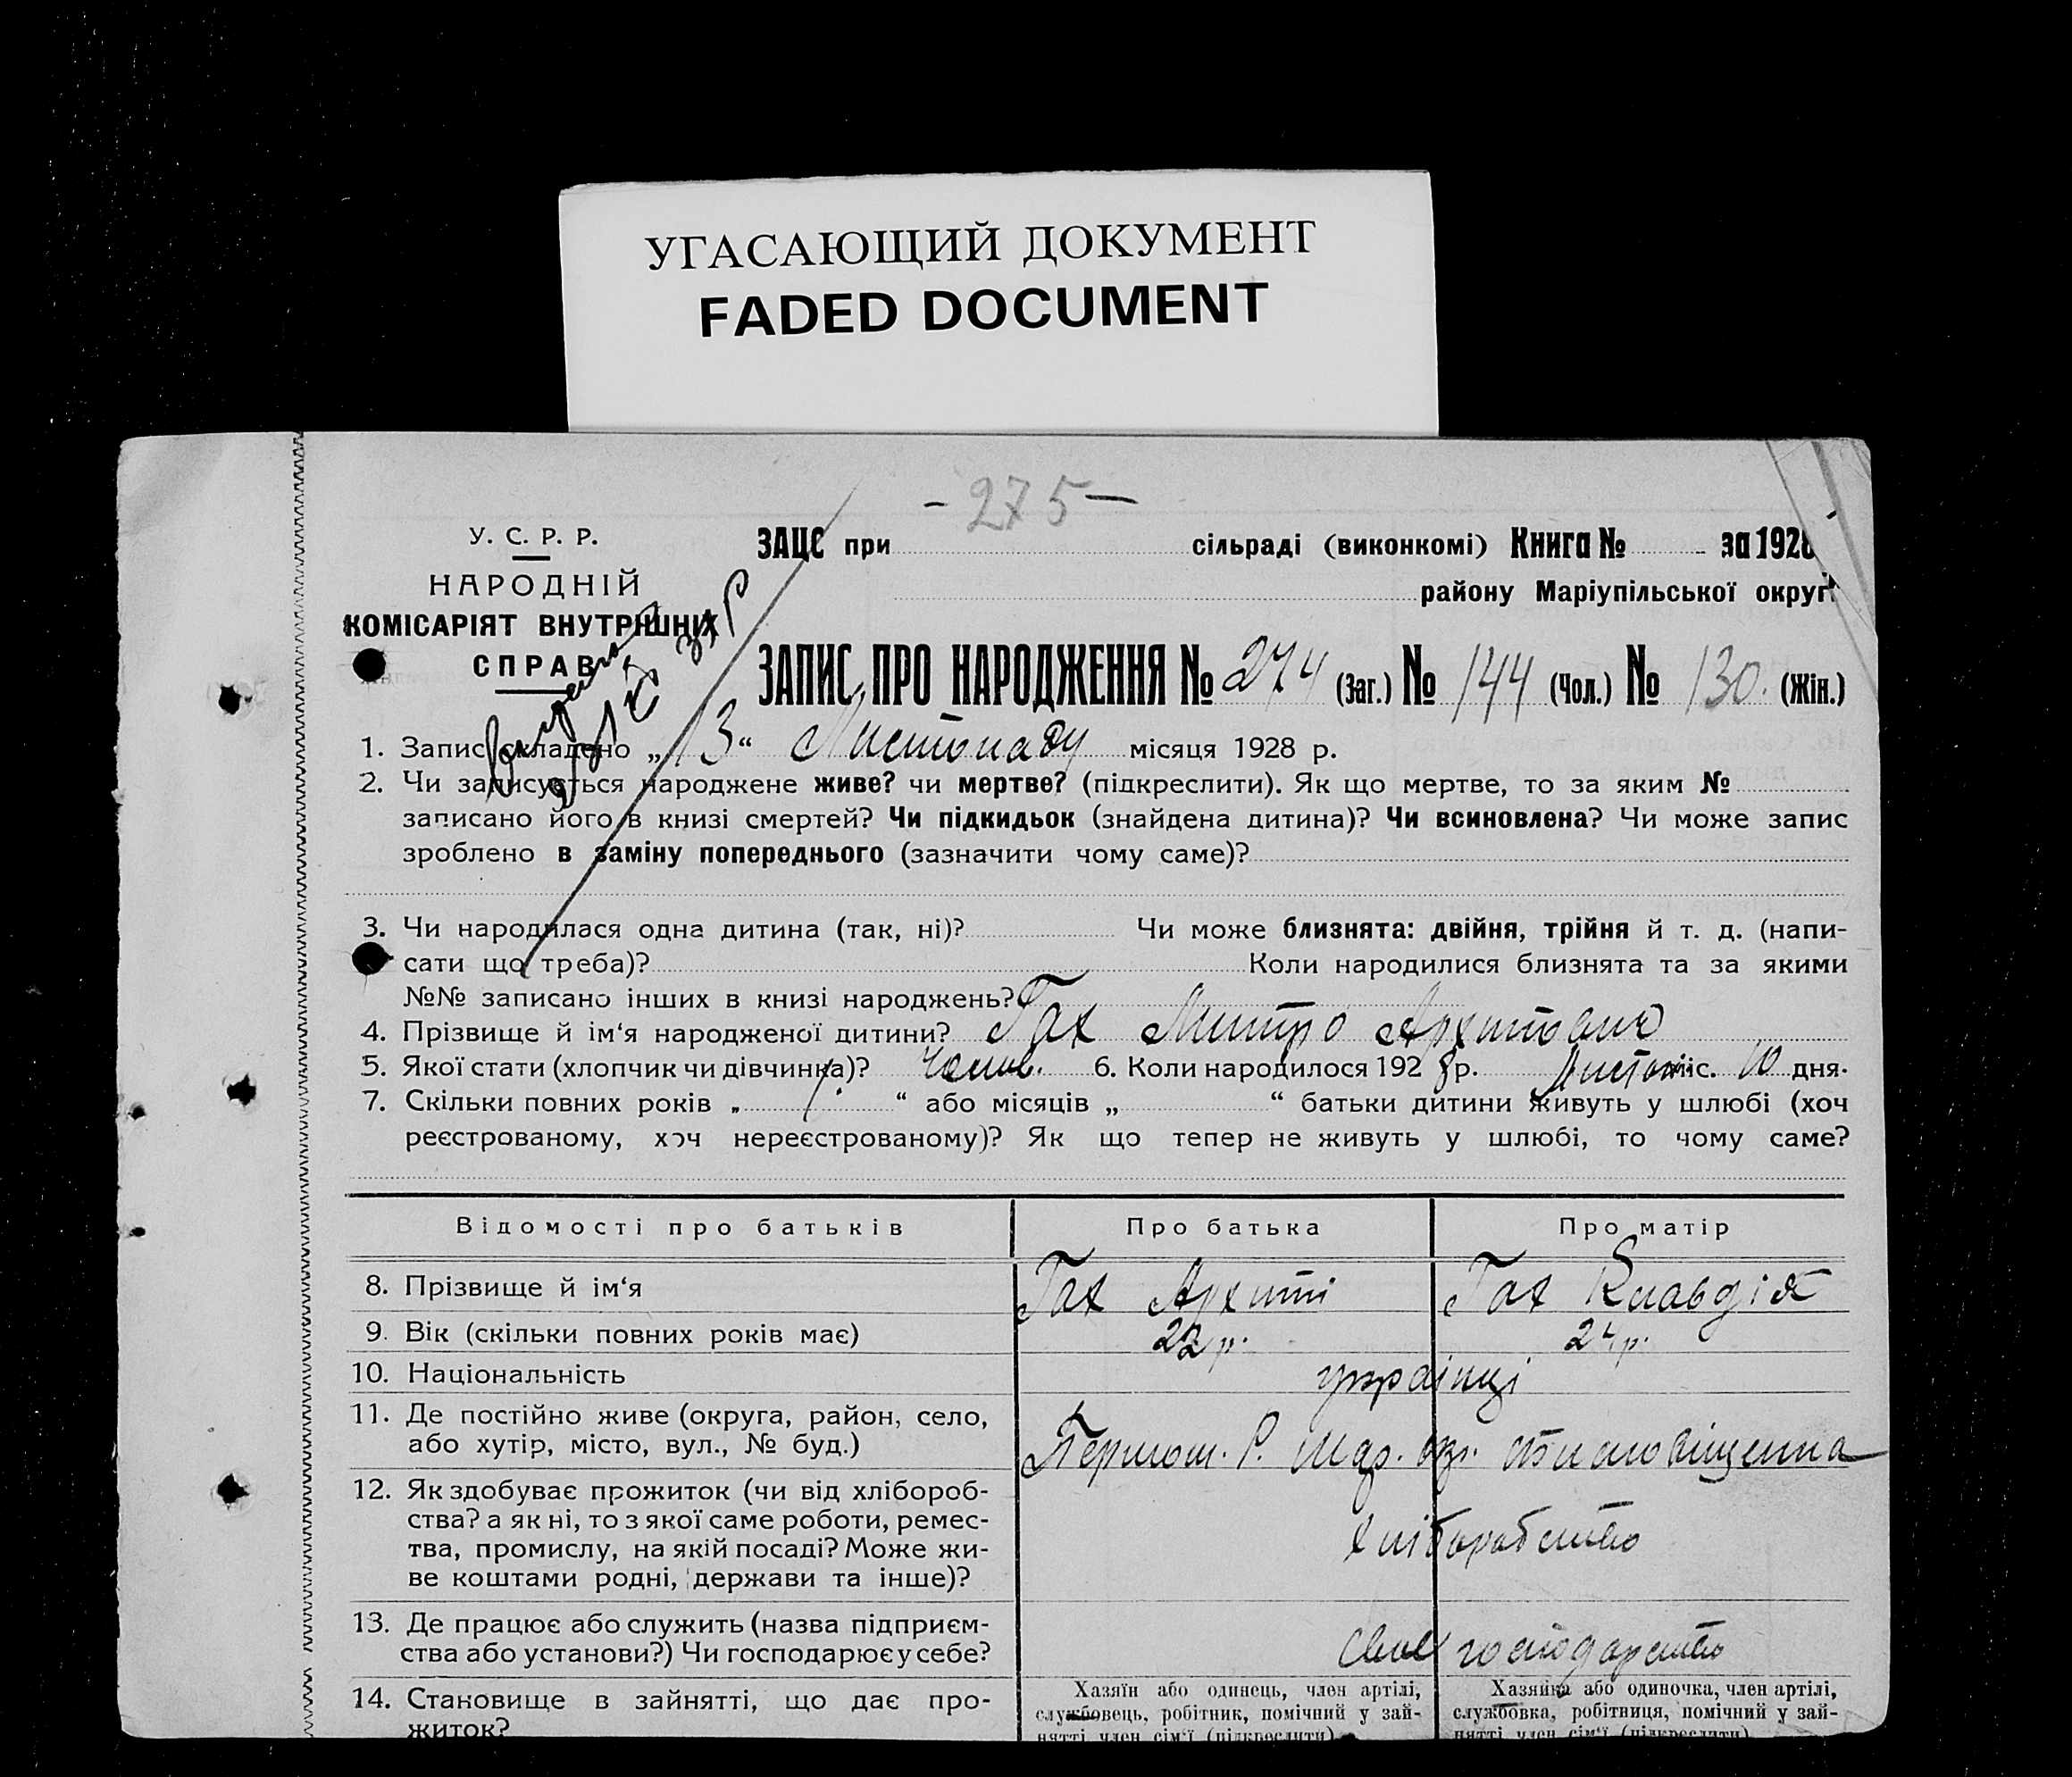 УГАСАЮЩИЙ ДОКУМЕНТ
FADED DOCUMENT
- 275 -
У. С. Р. Р.
НАРОДНІЙ
КОМІСАРІЯТ ВНУТРІШНИХ
СПРАВ
ЗАЦС при сільраді (виконкомі) Книга № за 1928
району Маріупільської округи
ЗАПИС ПРО НАРОДЖЕННЯ № 274 (Заг.) № 144 (Чол.) № 130. (Жін.)
1. Запис складено „ 13 “ Листопаду місяця 1928 р.
2. Чи записується народжене живе? чи мертве? (підкреслити). Як що мертве, то за яким №
записано його в книзі смертей? Чи підкидьок (знайдена дитина)? Чи всиновлена? Чи може запис
зроблено в заміну попереднього (зазначити чому саме)?
3. Чи народилася одна дитина (так, ні)? Чи може близнята: двійня, трійня й т. д. (напи-
сати що треба)? Коли народилися близнята та за якими
№№ записано інших в книзі народжень?
4. Прізвище й ім‘я народженої дитини? Гах Митро Архипович
5. Якої стати (хлопчик чи дівчинка)? 6. Коли народилося 192 8 р. Листоп. міс. 10 дня.
7. Скільки повних років „ 1. “ або місяців „ “ батьки дитини живуть у шлюбі (хоч
реєстрованому, хоч нереєстрованому)? Як що тепер не живуть у шлюбі, то чому саме?
Відомості про батьків Про батька Про матір
8. Прізвище й ім‘я Гах Архип Гах Клавдія
9. Вік (скільки повних років має) 22 р. 24 р.
10. Національність українці
11. Де постійно живе (округа, район, село,
або хутір, місто, вул., № буд.) Першот. Р. Мар. окр. благовіщенка
12. Як здобуває прожиток (чи від хлібороб-
ства? а як ні, то з якої саме роботи, ремес-
тва, промислу, на якій посаді? Може жи-
ве коштами родні, держави та інше)? хліборобство
13. Де працює або служить (назва підприєм-
ства або установи?) Чи господарює у себе? своє господарство
14. Становище в зайнятті, що дає про-
житок?
Хазяїн або одинець, член артілі,
службовець, робітник, помічний у зай-
нятті член сім‘ї (підкреслити)
Хазяйка або одиночка, член артілі,
службовка, робітниця, помічний у зай-
нятті член сім‘ї (підкреслити)